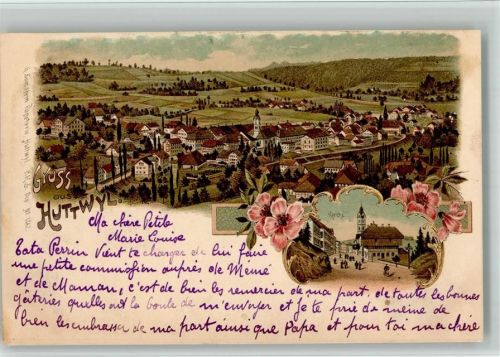 Gruss
aus
Huttwyl.
Ma chère Petite
Marie Louise
Tata Perrin Vient te charger de lui faire
une petite commission auprès de Mémé
et de Maman, c'est de bien les remercier de ma part, de toutes les bonnes
gâteries quelles ont la bonté de m'envoyer et je te prie de même de
bien les embrasser de ma part ainsi que Papa et pour toi ma chère